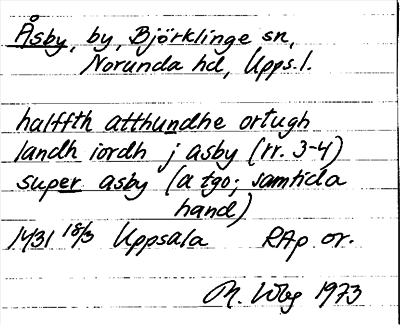 Åsby, by, Björklinge sn,
Norunda hd, Upps.l.
halffth atthundhe ortugh
landh iordh j asby (rr. 3-4)
super asby (a tgo; samtida
hand)
1431 18/3 Uppsala RAp or.
M. Wbg 1973